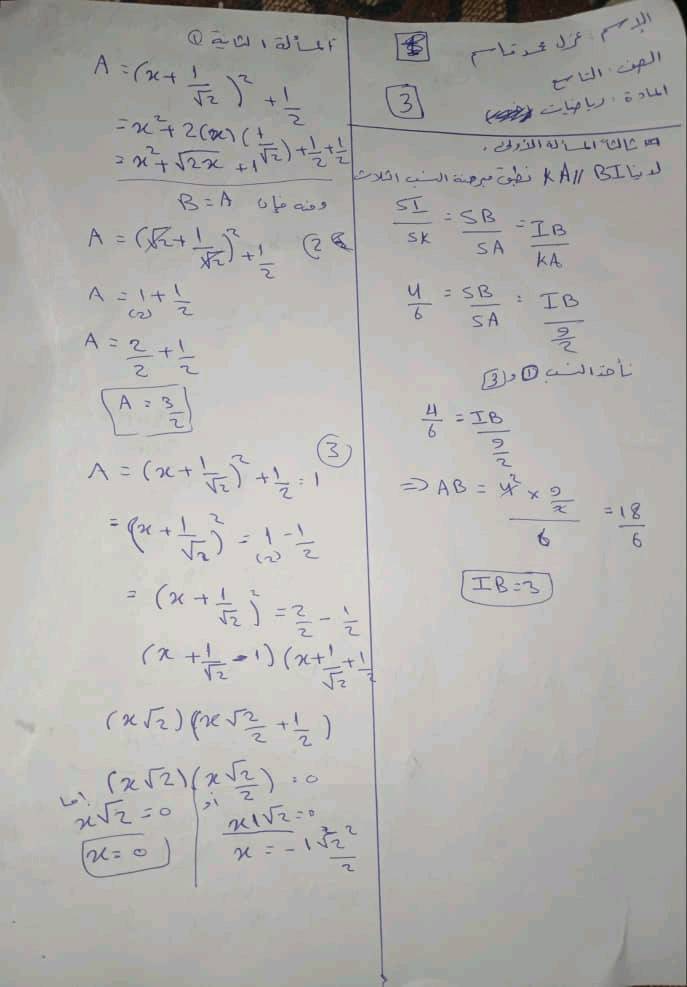 الاسم: غزل محمد قاسم
الصف: التاسع
المادة: رياضيات
3
ثالثا: المسألة الأولى:
لدينا KA // BI نطبق مبرهنة النسب الثلاث
SI/SK = SB/SA = IB/KA
4/6 = SB/SA = IB/(9/2)
نأخذ النسب ① و 3
4/6 = IB/(9/2)
=> AB = (4 × 9/2)/6 = 18/6
IB = 3
المسألة الثانية ①
A = (x + 1/√2)² + 1/2
= x² + 2(x)(1/√2) + 1/2 + 1/2
= x² + √2x + 1
ومنه فإن B = A
A = (√2 + 1/√2)² + 1/2 (2
A = 1 + 1/2
(2)
A = 2/2 + 1/2
A = 3/2
3
A = (x + 1/√2)² + 1/2 = 1
= (x + 1/√2)² = 1 - 1/2
(2)
= (x + 1/√2)² = 2/2 - 1/2
(x + 1/√2 - 1)(x + 1/√2 + 1/2
(x√2)(x√2/2 + 1/2)
(x√2)(x√2/2) = 0
اما x√2 = 0
x = 0
أو x1√2 = 0